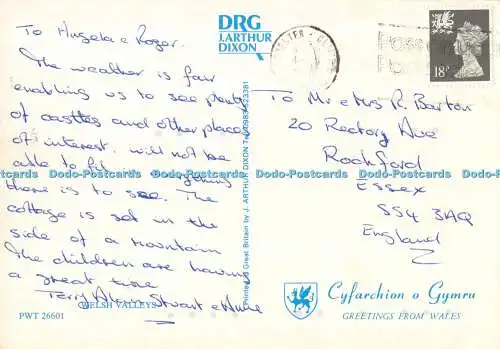 To Angela & Roger.
The weather is fair
enabling us to see plenty
of castles and other places
of interest. will not be
able to fit everything
there is to see. The
cottage is set in the
side of a mountain
The children are having
a great time
Terry, Alan, Stuart & Anne
WELSH VALLEYS
PWT 26601
DRG
J.ARTHUR
DIXON
Printed in Great Britain by J. ARTHUR DIXON Tel. 0983 523381
18P
To Mr & Mrs R. Barton
20 Rectory Ave
Rochford
Essex
SS4 3AQ
England
Cyfarchion o Gymru
GREETINGS FROM WALES
Dodo-Postcards Dodo-Postcards Dodo-Postcards Dodo-Postcards Dodo-Postcards Dodo-Postcards
www.dodo-postcards.com